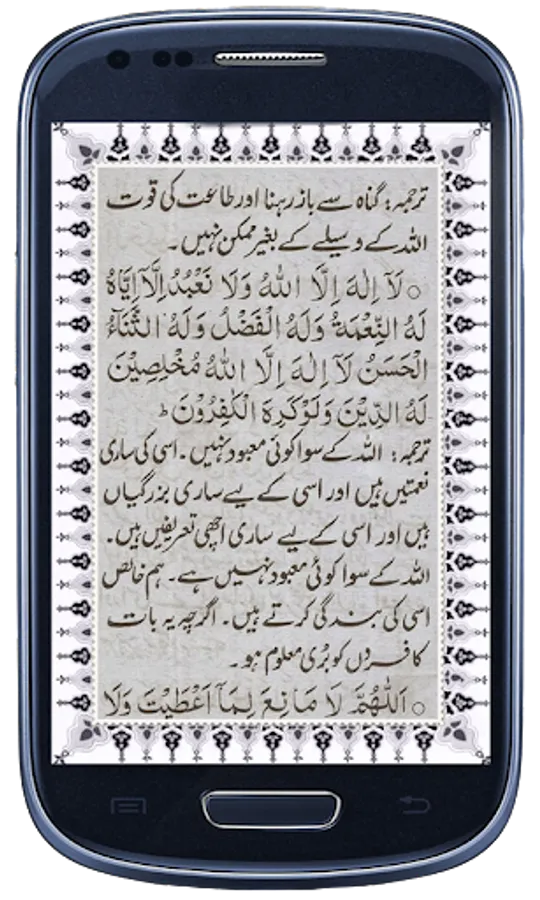 ترجمہ: گناہ سے باز رہنا اور طاعت کی قوت
اللہ کے وسیلے کے بغیر ممکن نہیں۔
○ لَآ اِلٰهَ اِلَّا اللهُ وَلَا نَعْبُدُ اِلَّآ اِيَّاهُ
لَهُ النِّعْمَةُ وَلَهُ الْفَضْلُ وَلَهُ الثَّنَآءُ
الْحَسَنُ لَآ اِلٰهَ اِلَّا اللهُ مُخْلِصِيْنَ
لَهُ الدِّيْنَ وَلَوْ كَرِهَ الْكٰفِرُوْنَ ط
ترجمہ: اللہ کے سوا کوئی معبود نہیں۔ اسی کی ساری
نعمتیں ہیں اور اسی کے لیے ساری بزرگیاں
ہیں اور اسی کے لیے ساری اچھی تعریفیں ہیں۔
اللہ کے سوا کوئی معبود نہیں ہے۔ ہم خالص
اسی کی بندگی کرتے ہیں۔ اگرچہ یہ بات
کافروں کو بُری معلوم ہو۔
○ اَللّٰهُمَّ لَا مَانِعَ لِمَآ اَعْطَيْتَ وَلَا